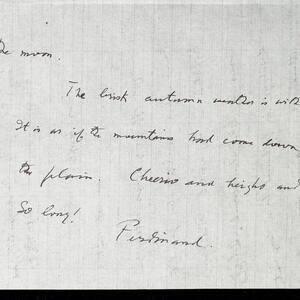 the moon.
The brisk autumn weather is with
It is as if the mountains had come down
the plain. Cheerio and heighs and
So long!
Ferdinand.